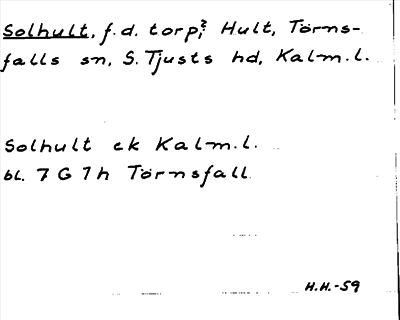 Solhult, f.d. torp, i Hult, Törns-
falls sn, S. Tjusts hd, Kalm.l.
Solhult ek Kalm.l.
bl. 7 G 7h Törnsfall
H.H.-59